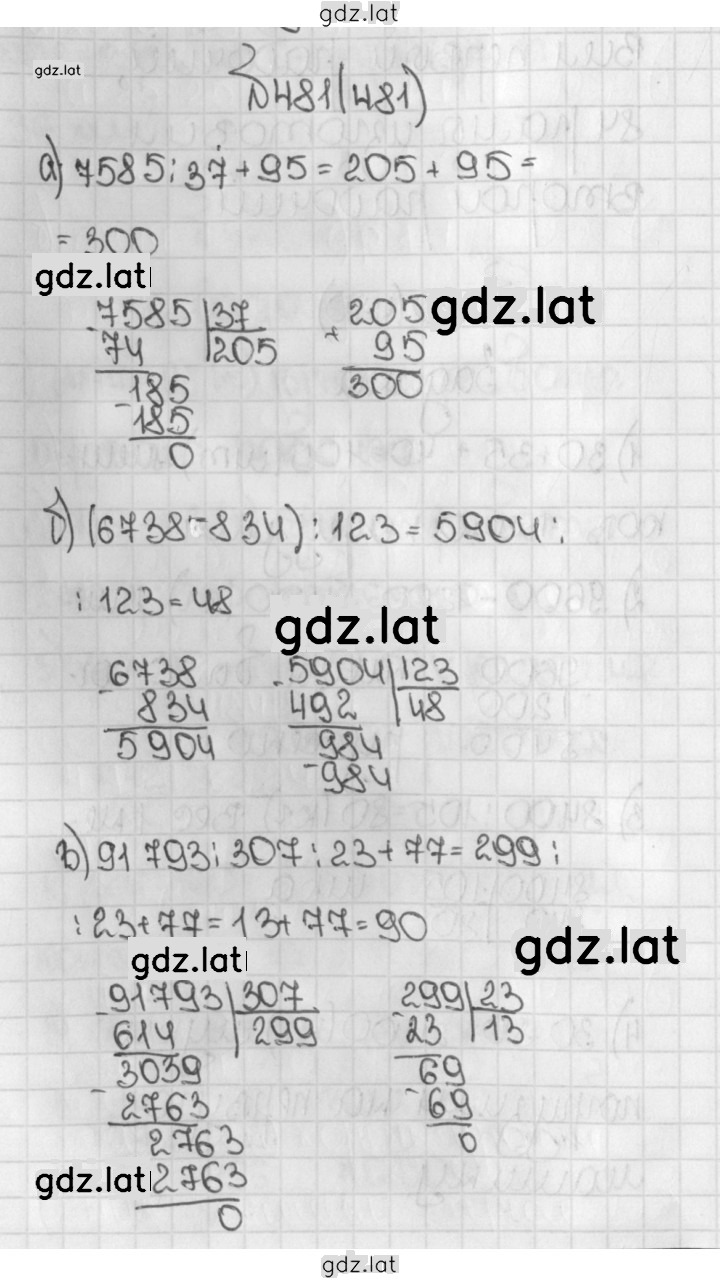 gdz.lat
gdz.lat
№481(481)
а) 7585:37+95=205+95=
=300
gdz.lat
gdz.lat
-7585 |37
74 |205
-185
185
0
+205
95
300
б) (6738-834):123=5904:
:123=48
gdz.lat
-6738
834
5904
-5904 |123
492 |48
984
-984
в) 91 793:307:23+77=299:
:23+77=13+77=90
gdz.lat
gdz.lat
-91793 |307
614 |299
3039
-2763
2763
gdz.lat
2763
0
299 |23
-23 |13
69
-69
0
gdz.lat